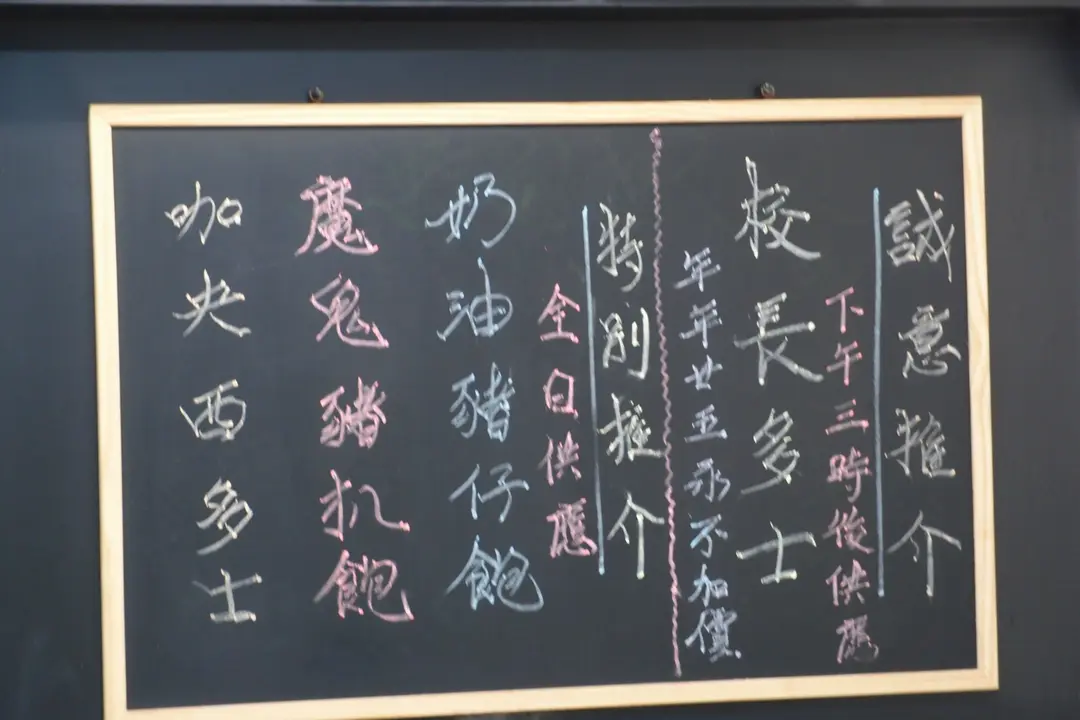 誠意推介
下午三時後供應
校長多士
年年廿五永不加價
特別推介
全日供應
奶油豬仔飽
魔鬼豬扒飽
咖央西多士